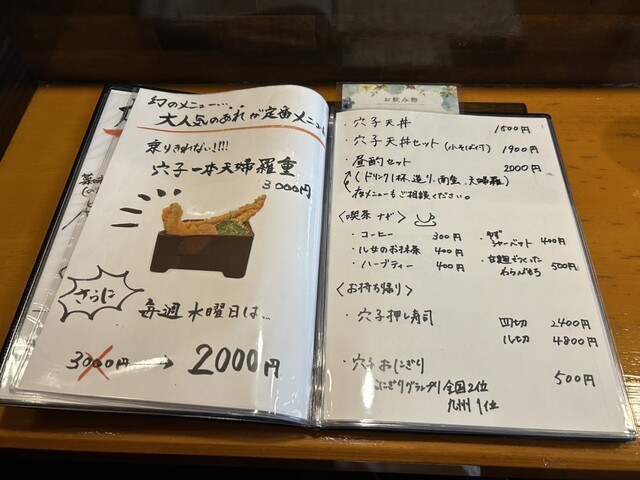 幻のメニュー…
大人気のあれが定番メニュー
乗りきれない!!!!
穴子一本天婦羅重
3000円
さらに
毎週水曜日は…
3000円 → 2000円
お飲み物
・穴子天丼 1500円
・穴子天丼セット(小そば付) 1900円
・昼酌セット 2000円
(ドリンク1杯、造り、南蛮、天婦羅)
夜メニューもご相談ください。
〈喫茶ナギ〉
・コーヒー 300円
・八女のお抹茶 400円
・ハーブティー 400円
・ゆずシャーベット 400円
・甘麹でつくったわらびもち 500円
〈お持ち帰り〉
・穴子押し寿司 四切 2400円
八切 4800円
・穴子おにぎり 500円
おにぎりグランプリ 全国2位
九州1位